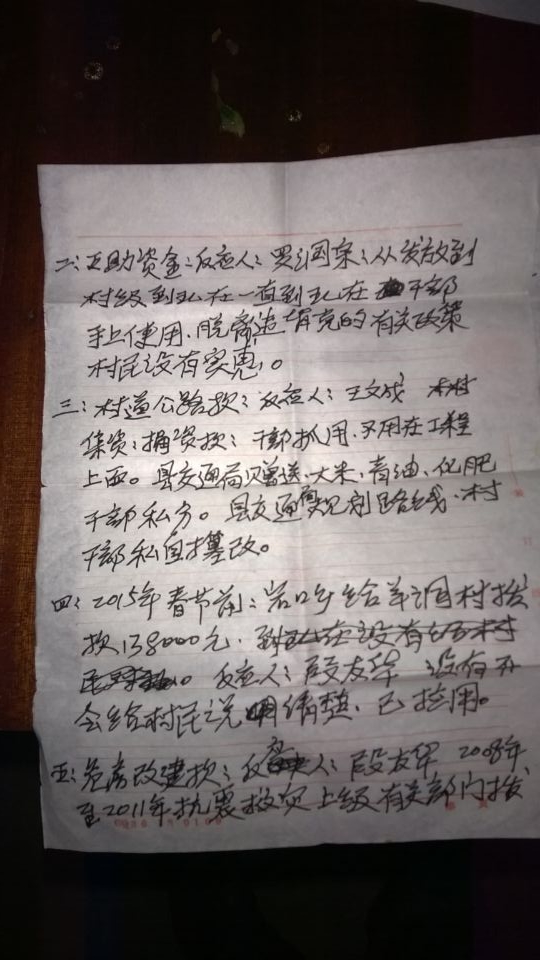 二:互助资金:反应人:罗润京:从发放到
村级到现在一直到现在 干部
手上使用.脱离造 有党的有关政策
村民没有实惠。
三:村道公路款:反应人:王文成 村
集资:捐资款:干部抓用.不用在工程
上面。县交通局赠送.大米.青油.化肥
干部私分。县交通局规划路线.村
干部私自撰改。
四:2015年春节前: 给羊调村拨
款138000元.到现在没有给村
民 。反应人:段友华 没有开
会给村民说明清楚.已挖用。
五:危房改建款:反应人:段友华 2008年
至2011年抗震救灾上级有关部门拨